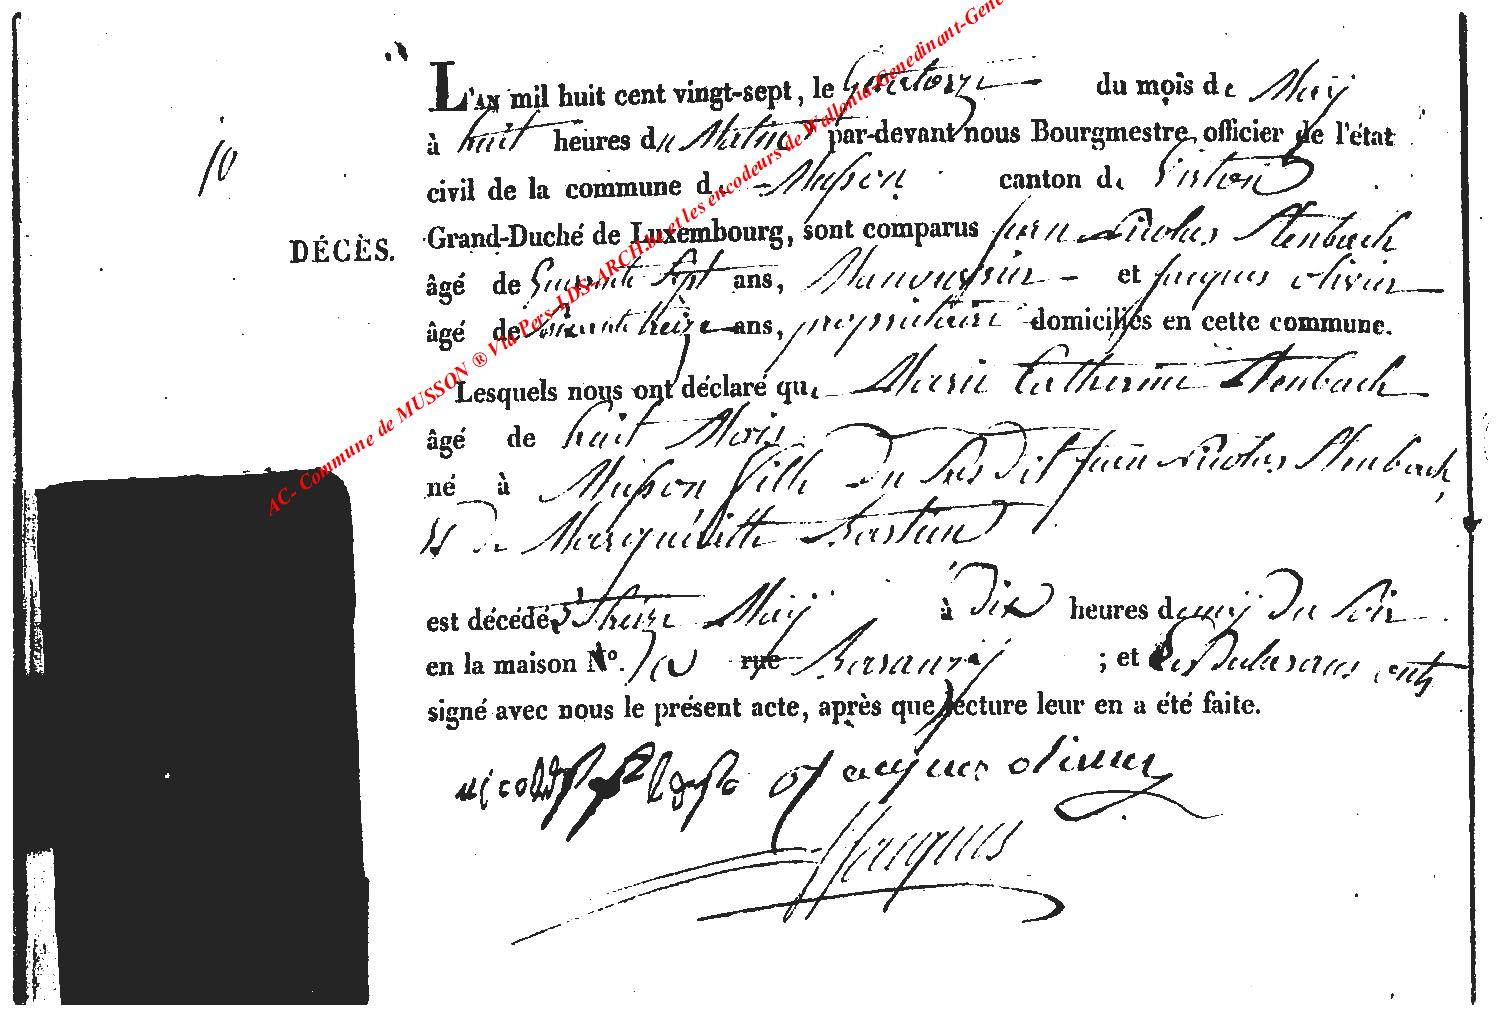 L'AN mil huit cent vingt-sept, le Quatorze du mois de May
à huit heures du Matin par-devant nous Bourgmestre, officier de l'état
10
civil de la commune de Musson canton de Virton
DÉCÈS.
Grand-Duché de Luxembourg, sont comparus jean Nicolas Stenbach
âgé de Quarante Sept ans, Manouvrier et jacques olivier
âgé de soixante treize ans, propriétaire domiciliés en cette commune.
Lesquels nous ont déclaré que Marie Catherine Stenbach
âgé de huit Mois
né à Musson fille du Sus dit jean Nicolas Stenbach,
et de Marguéritte Bastien
est décédé, treize May à Dix heures du Soir
en la maison N°. rue Baranzÿ ; et les Déclarans ont
signé avec nous le présent acte, après que lecture leur en a été faite.
jacques olivier
Jacques
AC- Commune de MUSSON ® Via Pers-LDS-ARCH.be et les encodeurs de Wallonia-Genedinant-Gene